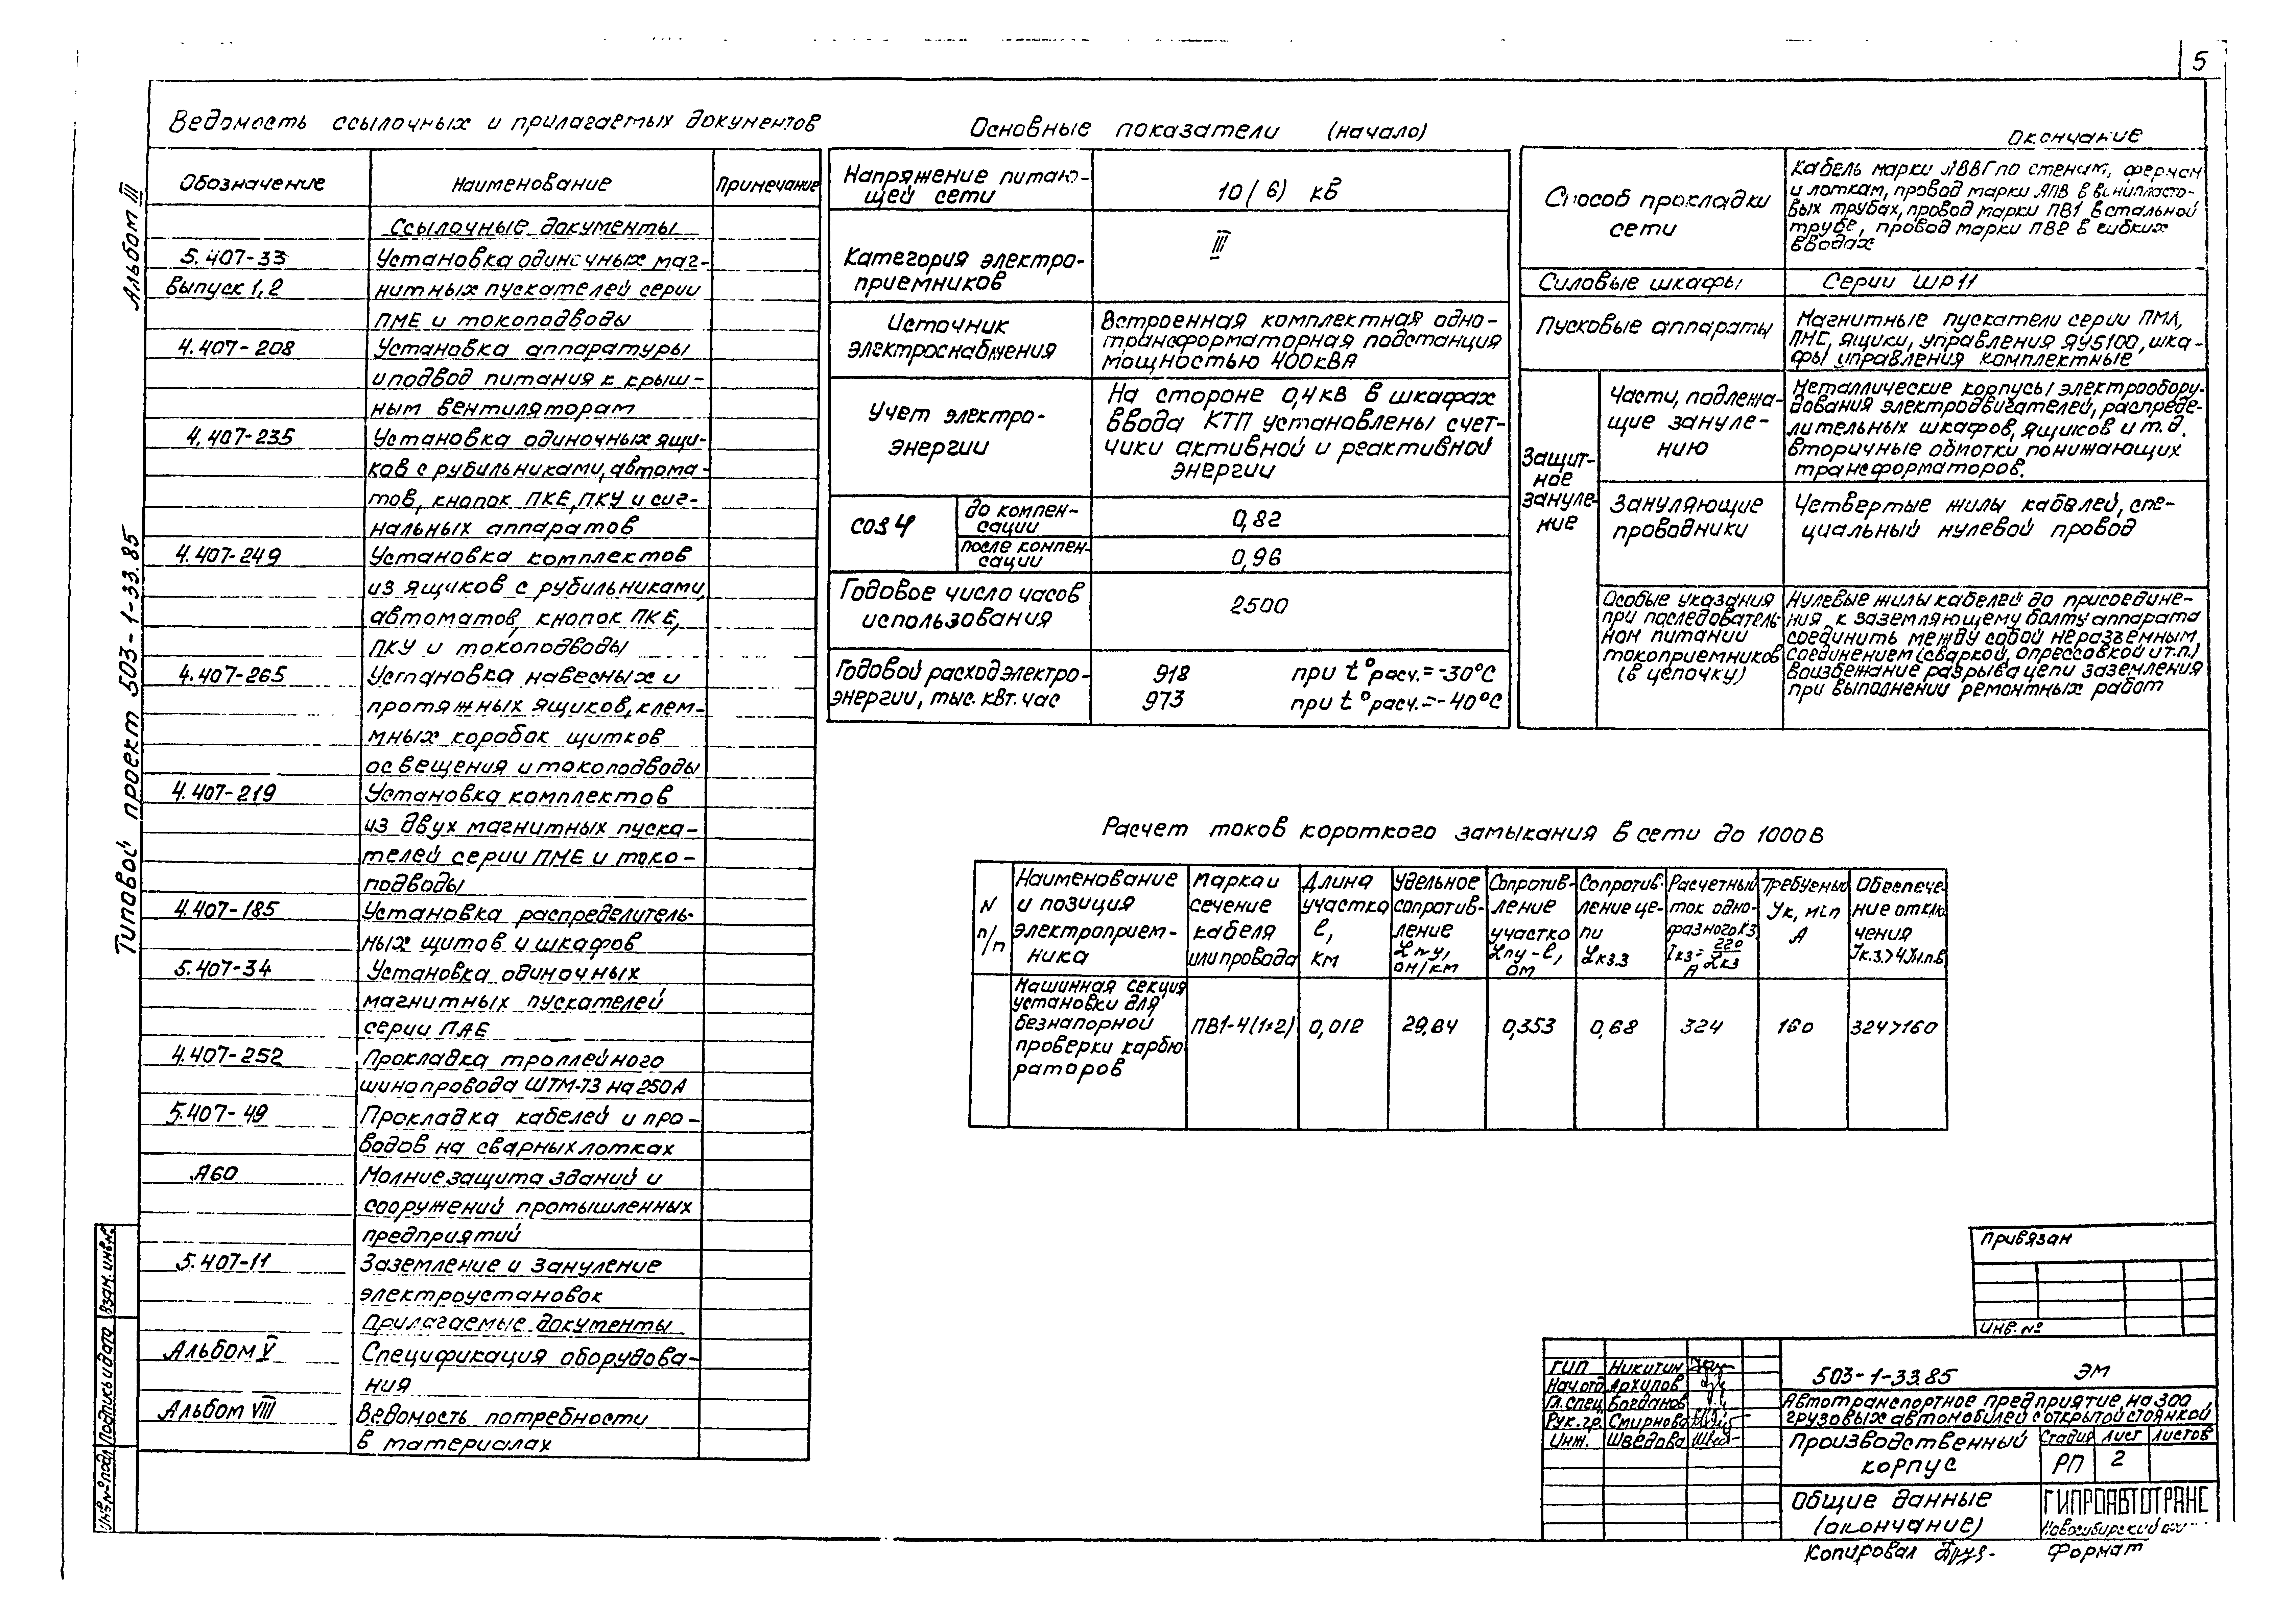 5
Альбом III
Типовой проект 503-1-33.85
Ведомость ссылочных и прилагаемых документов
Обозначение Наименование Примечание
Ссылочные документы
5.407-33 Установка одиночных маг-
Выпуск 1,2 нитных пускателей серии
ПМЕ и токоподводы
4.407-208 Установка аппаратуры
и подвод питания к крыш-
ным вентиляторам
4.407-235 Установка одиночных ящи-
ков с рубильниками, автома-
тов, кнопок ПКЕ, ПКУ и сиг-
нальных аппаратов
4.407-249 Установка комплектов
из ящиков с рубильниками,
автоматов, кнопок ПКЕ,
ПКУ и токоподводы
4.407-265 Установка навесных и
протяжных ящиков, клем-
мных коробок щитков
освещения и токоподводы
4.407-219 Установка комплектов
из двух магнитных пуска-
телей серии ПМЕ и токо-
подводы
4.407-185 Установка распределитель-
ных щитов и шкафов
5.407-34 Установка одиночных
магнитных пускателей
серии ПАЕ
4.407-252 Прокладка троллейного
шинопровода ШТМ-73 на 250А
5.407-49 Прокладка кабелей и про-
водов на сварных лотках
А60 Молниезащита зданий и
сооружений промышленных
предприятий
5.407-11 Заземление и зануление
электроустановок
Прилагаемые документы
Альбом V Спецификация оборудова-
ния
Альбом VIII Ведомость потребности
в материалах
Основные показатели (начало)
Напряжение питаю-
щей сети
10(6) кВ
Категория электро-
приемников
III
Источник
электроснабжения
Встроенная комплектная одно-
трансформаторная подстанция
мощностью 400кВА
Учет электро-
энергии
На стороне 0,4кВ в шкафах
ввода КТП установлены счет-
чики активной и реактивной
энергии
cos φ
до компен-
сации
0,82
после компен-
сации
0,96
Годовое число часов
использования
2500
Годовой расход электро-
энергии, тыс. квт. час
918 при t° расч.=-30°С
973 при t° расч.=-40°С
Окончание
Способ прокладки
сети
Кабель марки АВВГ по стенам, фермам
и лоткам, провод марки АПВ в винипласто-
вых трубах, провод марки ПВ1 в стальной
трубе, провод марки ПВ2 в гибких
вводах
Силовые шкафы Серии ШР11
Пусковые аппараты
Магнитные пускатели серии ПМЛ,
ПМЕ, ящики, управления ЯУ5100, шка-
фы управления комплектные
Защит-
ное
зануле-
ние
Части, подлежа-
щие зануле-
нию
Металлические корпусы электрообору-
дования электродвигателей, распреде-
лительных шкафов, ящиков и т.д.
вторичные обмотки понижающих
трансформаторов.
Зануляющие
проводники
Четвертые жилы кабелей, спе-
циальный нулевой провод
Особые указания
при последователь-
ном питании
токоприемников
(в цепочку)
Нулевые жилы кабелей до присоедине-
ния к заземляющему болту аппарата
соединить между собой неразъемным,
соединением (сваркой, опрессовкой и т.п.)
воизбежание разрыва цепи заземления
при выполнении ремонтных работ
Расчет токов короткого замыкания в сети до 1000В
N
п/п
Наименование
и позиция
электроприем-
ника
Марка и
сечение
кабеля
или провода
Длина
участка
ℓ,
км
Удельное
сопротив-
ление
Zпу,
ом/км
Сопротив-
ление
участка
Zпу-ℓ,
ом
Сопротив-
ление це-
пи
Zкз.з
Расчетный
ток одно-
фазного КЗ
Iкз=220/Zкз
А
Требуемый
Iк, min
А
Обеспече-
ние отклю-
чения
Iк.з.>4Iн.п.в.
Машинная секция
установки для
безнапорной
проверки карбю-
раторов
ПВ1-4(1×2) 0,012 29,84 0,353 0,68 324 160 324>160
Привязан
Инв. №
ГИП Никитин
Нач.отд Архипов
Гл.спец. Богданов
Рук.гр. Смирнова
Инж. Шведова
503-1-33.85 ЭМ
Автотранспортное предприятие на 300
грузовых автомобилей с открытой стоянкой
Производственный
корпус
Стадия Лист Листов
РП 2
Общие данные
(окончание)
ГИПРОАВТОТРАНС
Новосибирский
Копировал Формат
Взам. инв.№
Подпись и дата
Инв.№ подл